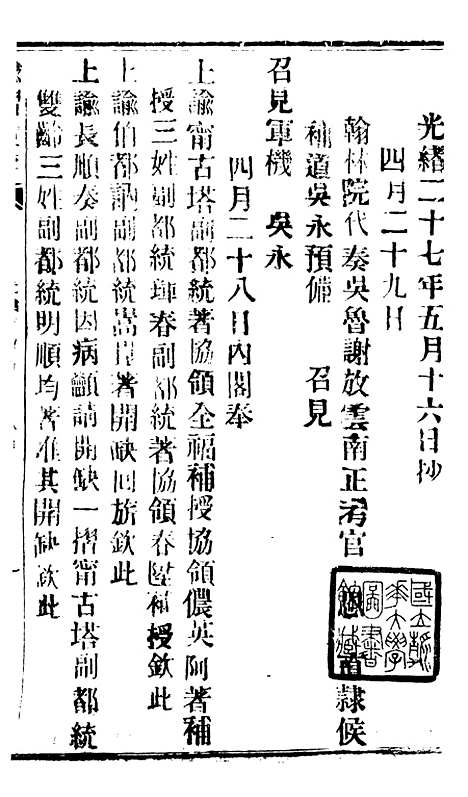 光緒二十七年五月十六日抄
四月二十九日
翰林院代奏吳魯謝放雲南正考官 恩 直隸候
補道吳永預備 召見
召見軍機 吳永
四月二十八日內閣奉
上諭甯古塔副都統著協領全福補授協領儂英阿著補
授三姓副都統琿春副都統著協領春陞補授欽此
上諭伯都訥副都統嵩崑著開缺回旂欽此
上諭長順奏副都統因病籲請開缺一摺甯古塔副都統
雙齡三姓副都統明順均著准其開缺欽此
國立
華大學
圖書
館藏